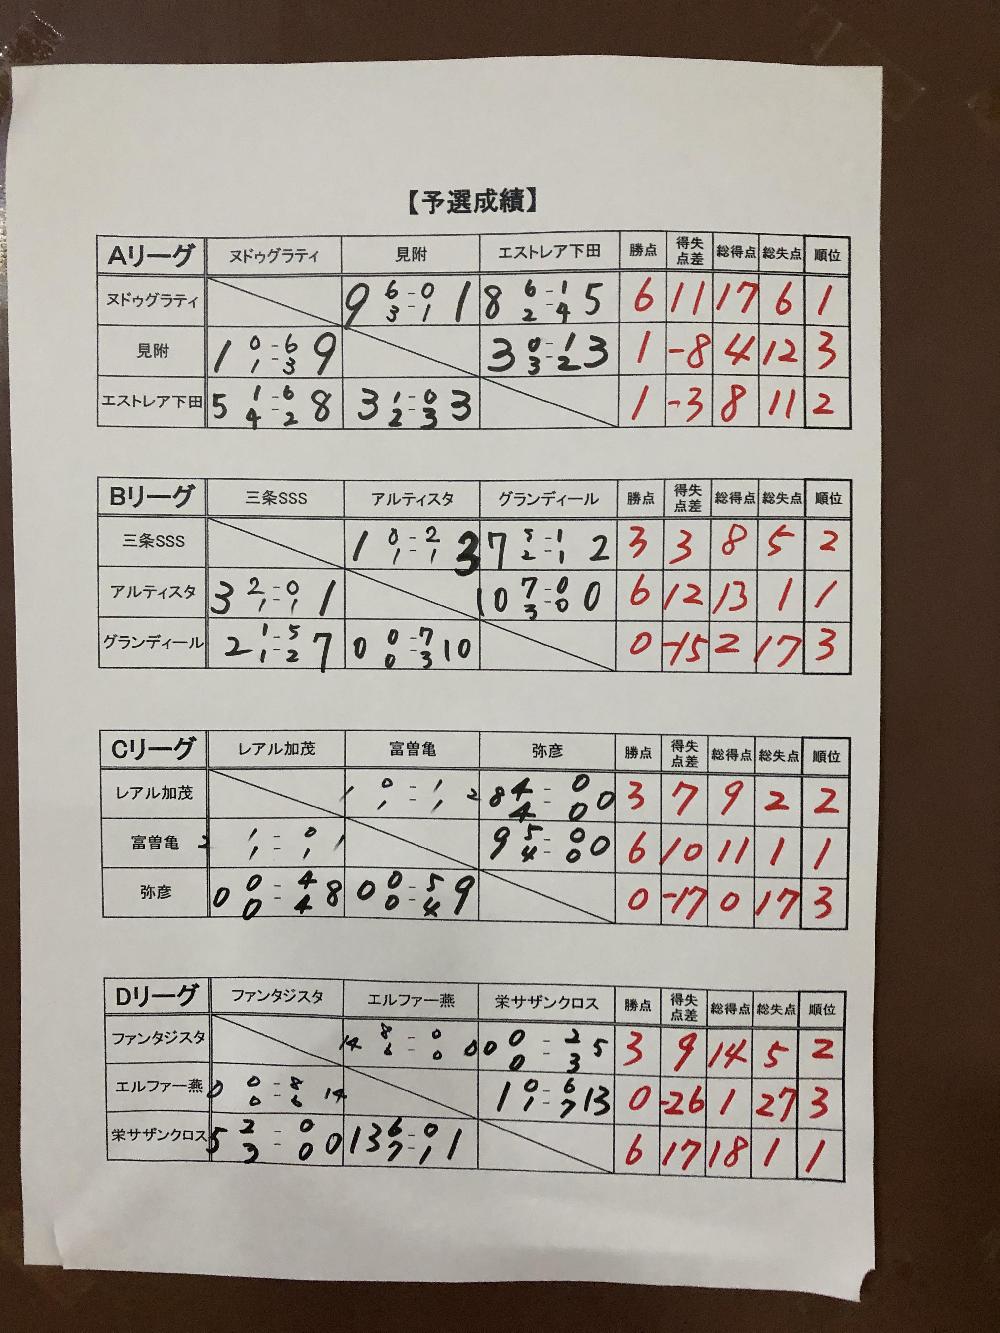 【予選成績】
Aリーグ ヌドゥグラティ 見附 エストレア下田 勝点 得失点差 総得点 総失点 順位
ヌドゥグラティ 9 6-0 3-1 1 8 6-1 2-4 5 6 11 17 6 1
見附 1 0-6 1-3 9 3 0-1 3-2 3 1 -8 4 12 3
エストレア下田 5 1-6 4-2 8 3 1-0 2-3 3 1 -3 8 11 2
Bリーグ 三条SSS アルティスタ グランディール 勝点 得失点差 総得点 総失点 順位
三条SSS 1 0-2 1-1 3 7 5-1 2-1 2 3 3 8 5 2
アルティスタ 3 2-0 1-1 1 10 7-0 3-0 0 6 12 13 1 1
グランディール 2 1-5 1-2 7 0 0-7 0-3 10 0 -15 2 17 3
Cリーグ レアル加茂 富曽亀 弥彦 勝点 得失点差 総得点 総失点 順位
レアル加茂 1 0-1 1-1 2 8 4-0 4-0 0 3 7 9 2 2
富曽亀 2 1-0 1-1 1 9 5-0 4-0 0 6 10 11 1 1
弥彦 0 0-4 0-4 8 0 0-5 0-4 9 0 -17 0 17 3
Dリーグ ファンタジスタ エルファー燕 栄サザンクロス 勝点 得失点差 総得点 総失点 順位
ファンタジスタ 14 8-0 6-0 0 0 0-2 0-3 5 3 9 14 5 2
エルファー燕 0 0-8 0-6 14 1 0-6 1-7 13 0 -26 1 27 3
栄サザンクロス 5 2-0 3-0 0 13 6-0 7-1 1 6 17 18 1 1